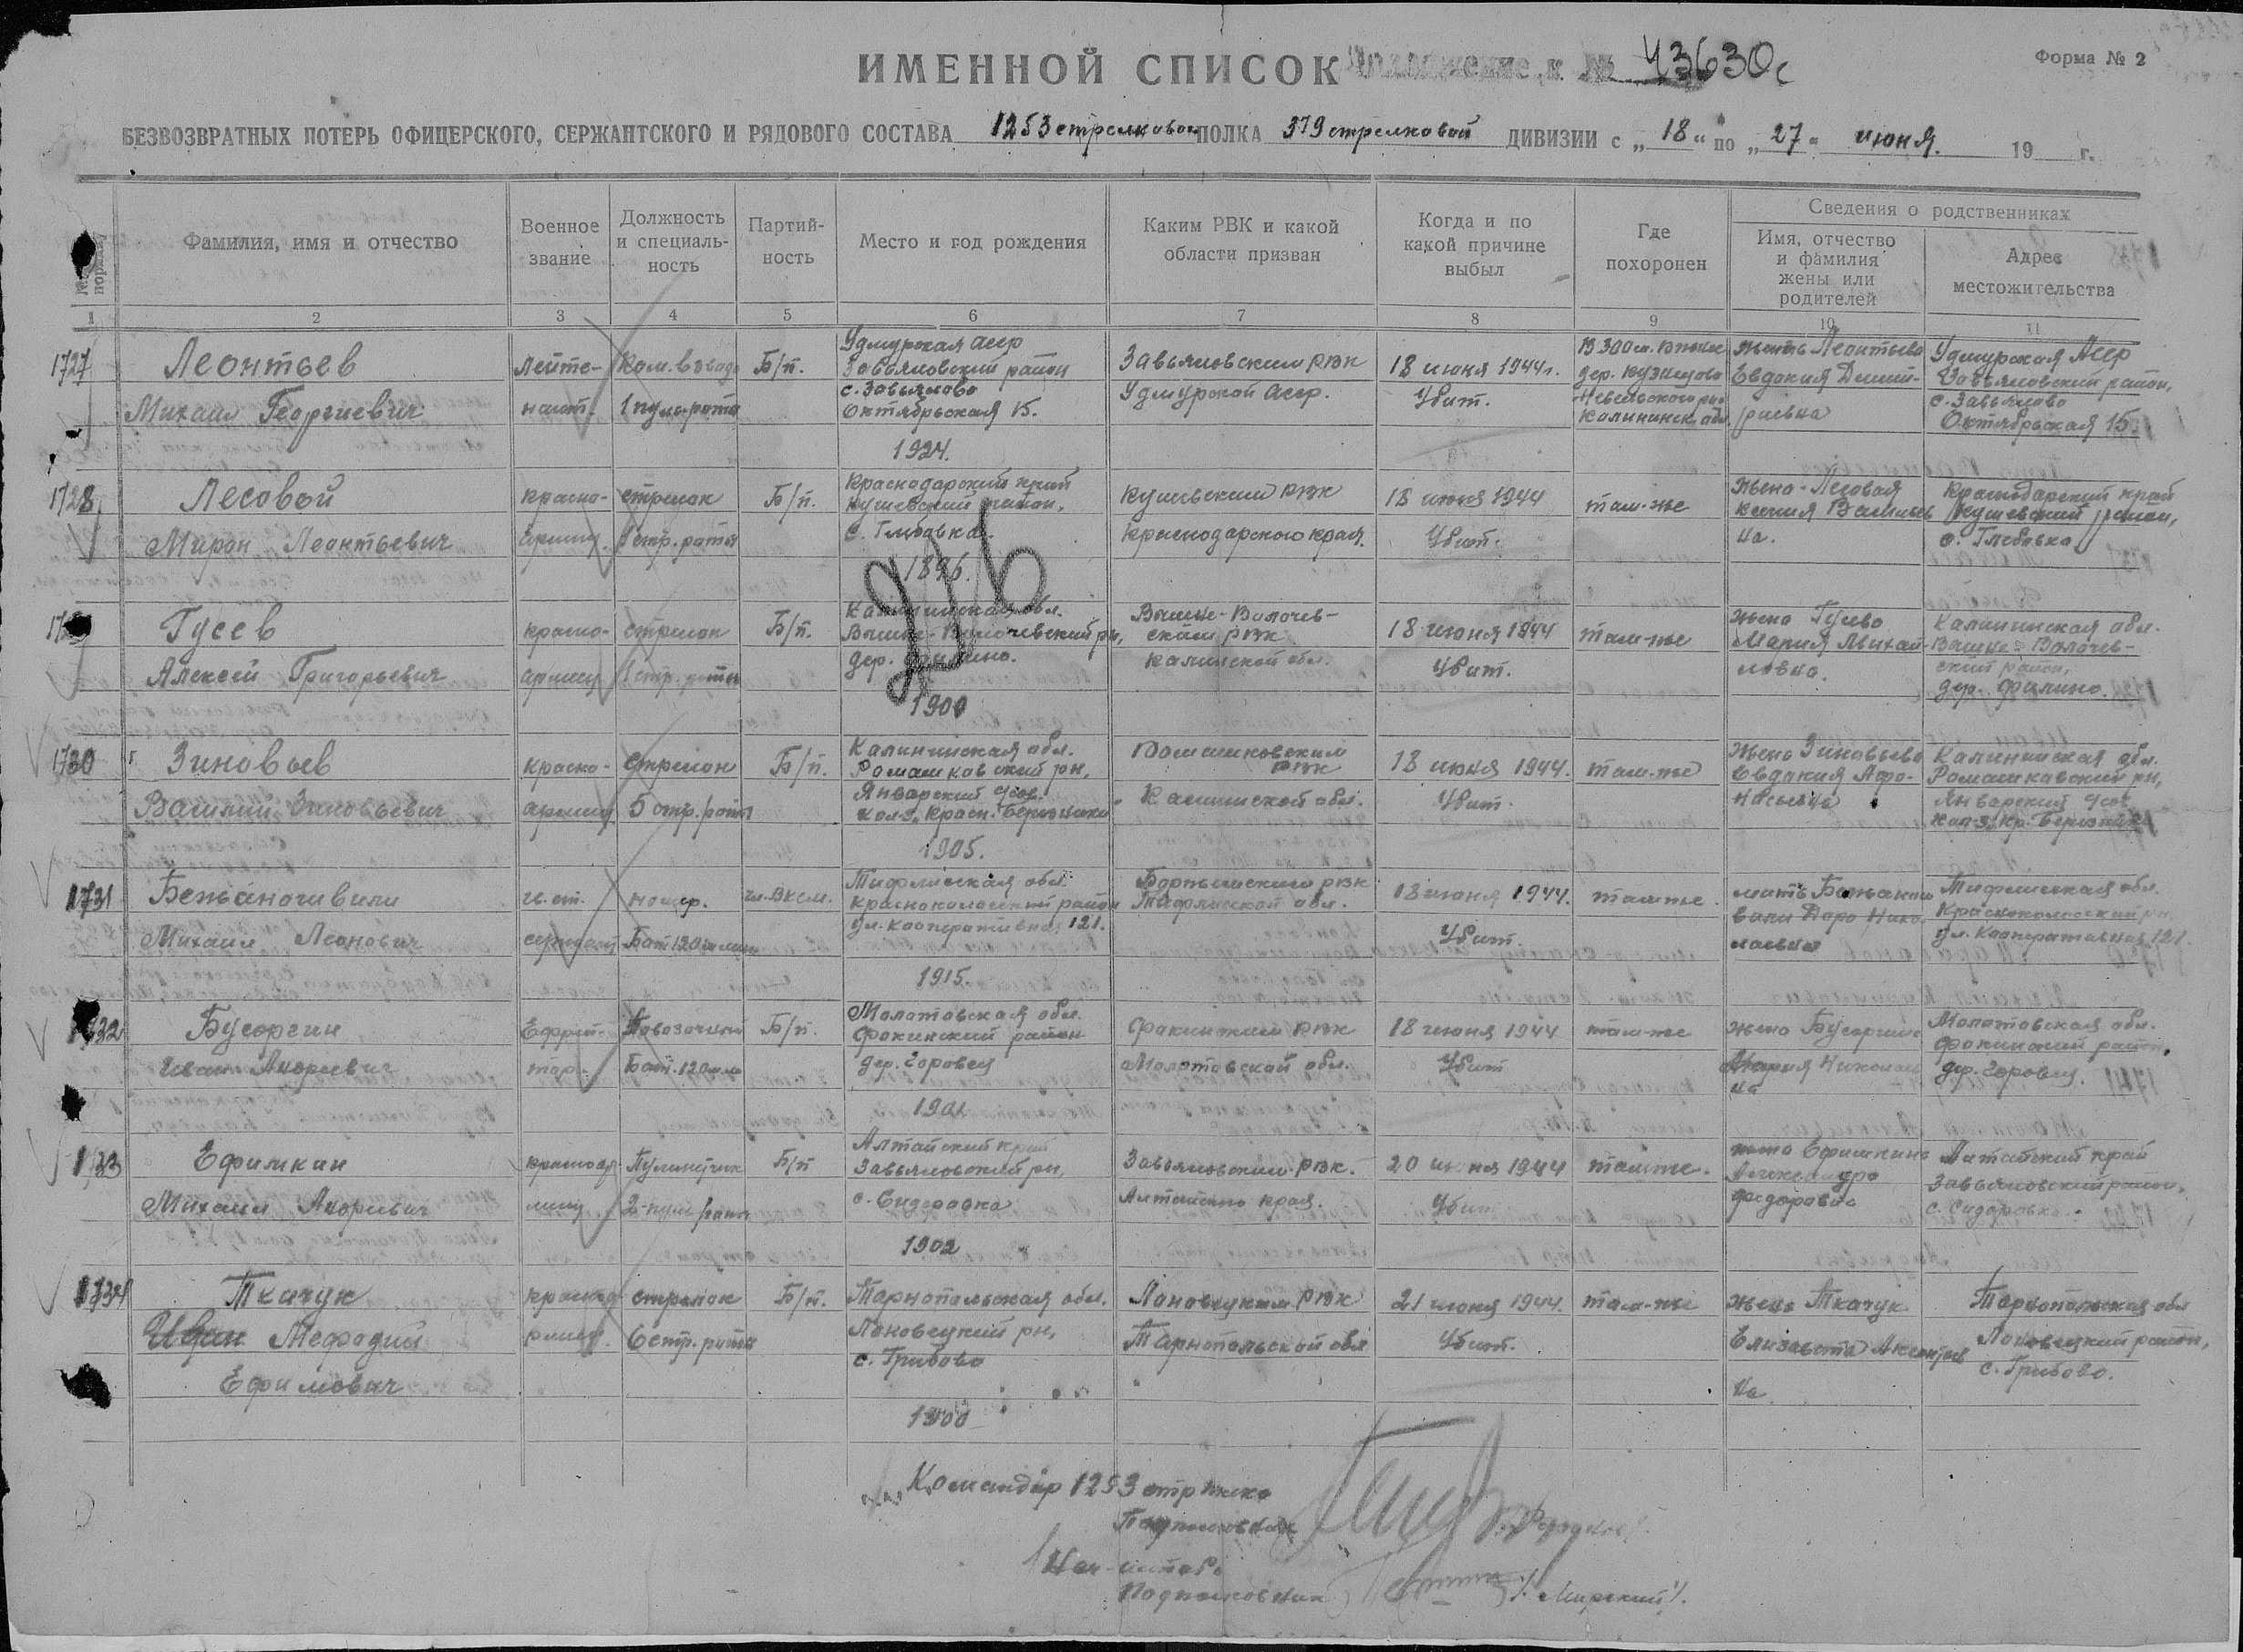 ИМЕННОЙ СПИСОК к № 43630с
Форма № 2
БЕЗВОЗВРАТНЫХ ПОТЕРЬ ОФИЦЕРСКОГО, СЕРЖАНТСКОГО И РЯДОВОГО СОСТАВА 1253 стрелковой ПОЛКА 379 стрелковой ДИВИЗИИ с „ 18 " по „ 27 " июня. 19 г.
порядку
Фамилия, имя и отчество
Военное звание
Должность и специаль-ность
Партий-ность
Место и год рождения
Каким РВК и какой области призван
Когда и по какой причине выбыл
Где похоронен
Сведения о родственниках
Имя, отчество и фамилия жены или родителей
Адрес местожительства
1 2 3 4 5 6 7 8 9 10 11
1727 Леонтьев Михаил Георгиевич
Лейте-нант.
Ком. взвода 1 пул. рота
Б/п.
Удмурская асср Завьяловский район с. Завьялово Октябрьская 15. 1924.
Завьяловским рвк Удмурской асср.
18 июня 1944г. Убит.
В 300 м. дер. Кузнецово Невельского р-на Калининск. обл.
мать Леонтьева Евдокия Дмит-риевна
Удмурская Асср Завьяловский район, с. Завьялово Октябрьская 15.
1728 Лесовой Мирон Леонтьевич
красно-армеец
стрелок 1 стр. роты
Б/п.
Краснодарский край Кущевский район, с. Глебовка. 1896.
Кущевским рвк Краснодарского края.
18 июня 1944 Убит.
там-же
жена - Лесовая Васильев на.
Краснодарский край Кущевский район, с. Глебовка
Гусев Алексей Григорьевич
красно-армеец
стрелок 1 стр. роты
Б/п.
Калининская обл. Вышне-Волочевский рн, дер. Филино. 1900
Вышне-Волочев-ским рвк обл.
18 июня 1944 Убит.
там-же
жена Гусева Мария Михай-ловна.
Калининская обл. Вышне-Волочев-ский район, дер. Филино.
1730 Зиновьев Василий Зиновьевич
красно-армеец
стрелок 5 стр. роты
Б/п.
Калининская обл. Ромашковский рн, Январский кол-з 1905.
Ромашковским рвк обл.
18 июня 1944. Убит.
там-же
жена Зиновьева Евдокия Афа-насьевна
Калининская обл. Ромашковский рн, Январский
1731 Бежаношвили Михаил Леонович
ст. сержант
Бат 120 мм
чл. ВКСМ.
Тифлисская обл. район ул. Кооперативная 121. 1915.
рвк Тифлисской обл.
18 июня 1944. Убит.
там-же.
мать Бежано швили Дара Нико лаевна
Тифлисская обл. ул. Кооперативная 121.
1732 Бусоргин Иван Андреевич
Ефрей-тор.
Повозочный Бат. 120 мм
Б/п.
Молотовская обл. Фокинский район дер. 1901
Фокинским рвк Молотовской обл.
18 июня 1944 Убит
там-же
жена Бусоргина Мария Николаев на
Молотовская обл. Фокинский район. дер.
1733 Ефимкин Михаил Андреевич
красноар-меец
Пулеметчик 2-пул рота
Б/п
Алтайский край Завьяловский рн, с. Сидоровка 1902
Завьяловским рвк. Алтайского края.
20 июня 1944 Убит
там же.
жена Ефимкина Александра Федоровна
Алтайский край Завьяловский район, с. Сидоровка.
1734 Ткачук Мефодий Ефимович
стрелок 6 стр. роты
Б/п.
Тарнопольская обл. Лановецкий рн, с. Грибово 1900
Лановецким рвк Тарнопольской обл
21 июня 1944. Убит.
там-же
жена Ткачук Елизавета на
Тарнопольская обл Лановецкий район, с. Грибово.
Командир 1253 стр полка
Подполковник
Нач-штаба
Подполковник /Мирский/.